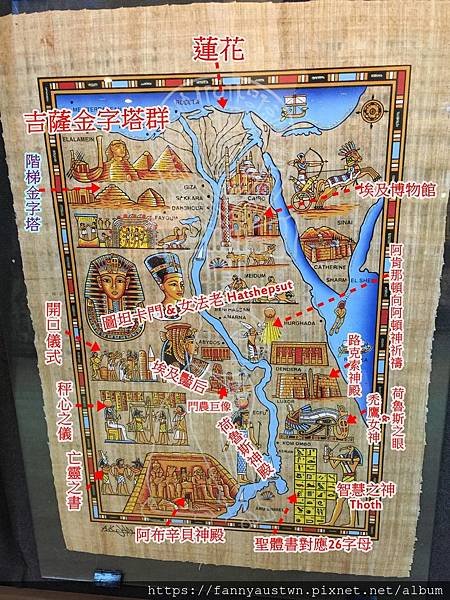 蓮花
ROSETTA
吉薩金字塔群
EL ALAMEIN
階梯金字塔
GIZA
SAKKARA
DAHSHOUR
FAYOUM
CAIRO
埃及博物館
SINAI
ST. CATHERINE
SHARM EL SHEIKH
MEIDUM
圖坦卡門 & 女法老 Hatshepsut
阿肯那頓向阿頓神祈禱
HURGHADA
開口儀式
ABYDOS
埃及豔后
DENDERA
路克索神殿
LUXOR
門農巨像
荷魯斯之眼
禿鷹女神
秤心之儀
EDFU
荷魯斯神殿
KOM OMBO
亡靈之書
智慧之神
Thoth
ABU SIMBEL
阿布辛貝神殿
聖體書對應26字母
https://fannyaustwn.pixnet.net/album